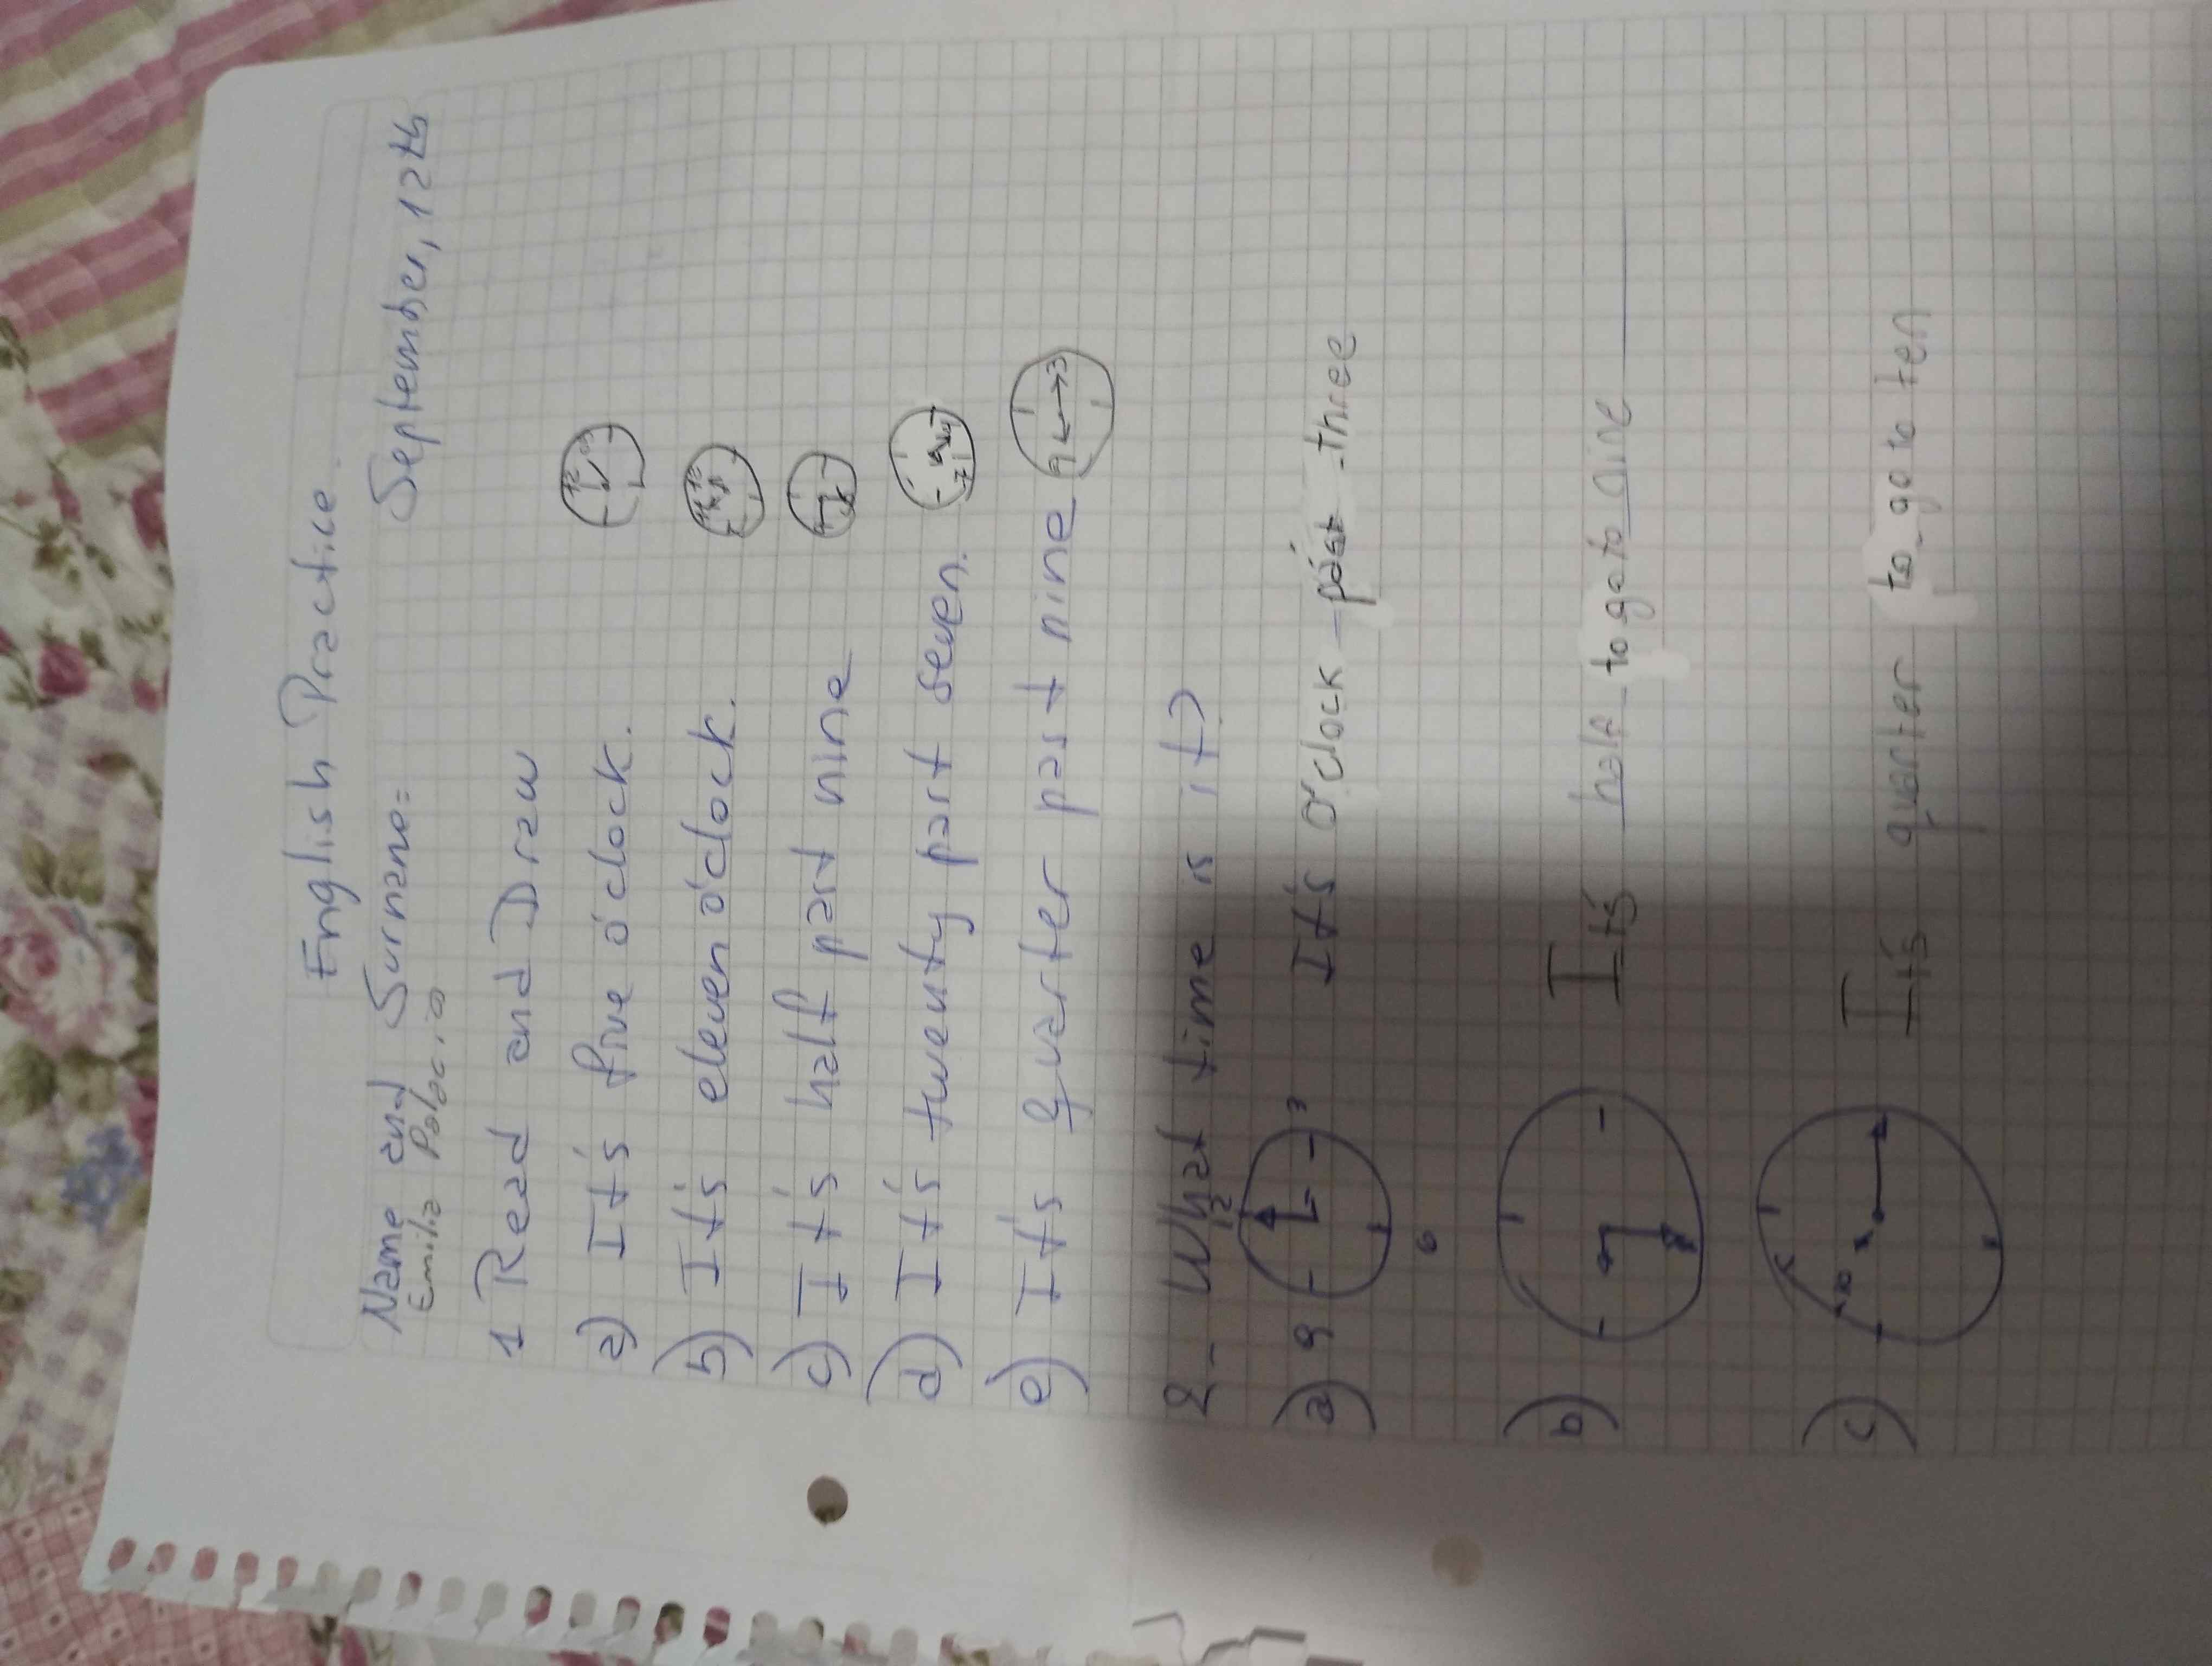 English Practice.
Name and Surname: September, 12th
Emilia Palacio
1 Read and Draw
a) It's five o'clock. 12
b) It's eleven o'clock.
c) It's half past nine
d) It's twenty past seven.
e) It's quarter past nine 9 3
2- What time is it?
12
a) 9 3 It's o'clock past three
6
b) It's half to go to nine
c) It's quarter to go to ten